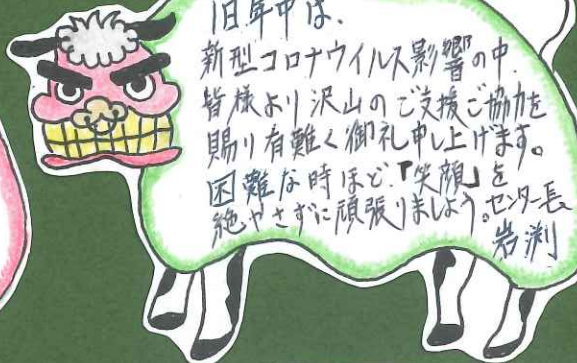 旧年中は、
新型コロナウイルス影響の中、
皆様より沢山のご支援ご協力を
賜り有難く御礼申し上げます。
困難な時ほど、『笑顔』を
絶やさずに頑張りましょう。センター長
岩渕